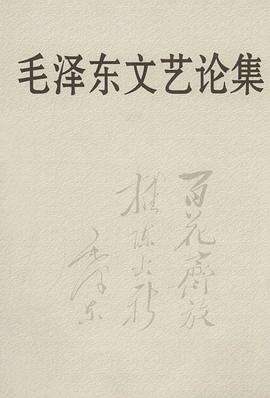 毛泽东文艺论集
百花齊放
推陈出新
毛泽东